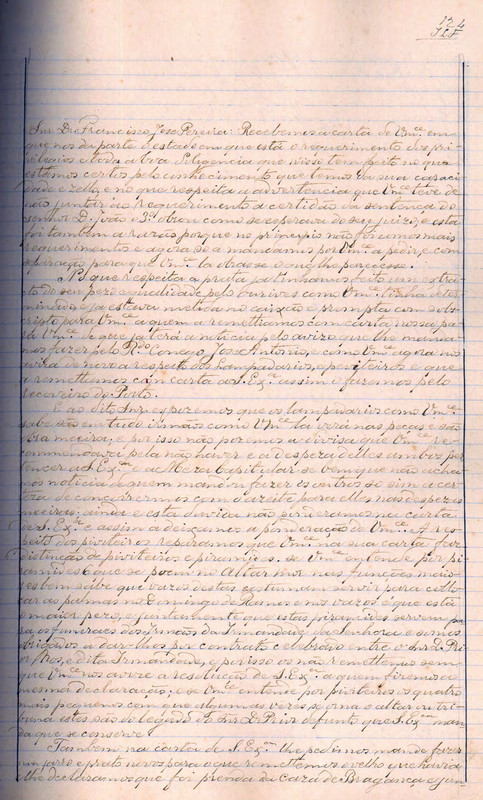 124
Snr. Dr. Francisco Jose Pereira: Recebemos a carta de Vmce em
que nos da parte do estado em que está o requerimento dos pri-
vilegios e toda a boa diligencia que nisso tem feito no que
estamos certos pelo conhecimento que temos da sua capaci-
dade e zello, e no que respeita a advertencia que Vmce teve de
não juntar ao requerimento a certidão da sentença do
senhor D. João o 1º obrou como se esperava do seu juizo, e esta
foi tambem a razão porque no principio não fizemos mais
requerimento e agora só a mandamos por Vmce a pedir, e com
para que Vmce la obrasse o melhor parecesse.
No que respeita a prata ja tinhamos feito um extra-
to do seu pezo e qualidade pelo ourives como Vmce tinha deter-
minado, e ja estava metida no caixão e prompta com sobs-
cripto para Vmce a quem a remettiamos com carta nossa pa-
ra Vmce de que ja terá a noticia pelo aviso que lhe manda-
mos fazer pelo Rdo Conego Jose Antonio, e como Vmce agora nos
avisa de novo a respeito dos lampadarios, e piviteiros e que
a remettamos com carta a S. Exa assim o faremos pelo
recoveiro do Porto.
E ao dito Snr. expozemos que os lampadarios como Vmce
sabe são em tudo irmãos como Vmce la verá nas peças e são
obra moderna, e por isso não pozemos a divisa que Vmce re-
commendava pela não haver e a despeza delles ambos per-
tencer a S. Exa e a Meza Capitular se bem que não acha-
mos noticia de quem mandou fazer os outros se sim a cer-
teza de concorrermos com o azeite para elles nas despezas
maiores; ainda esta duvida não pozeramos na carta
a S. Exa e assim a deixamos a ponderação de Vmce. A res-
peito dos piviteiros reparamos que Vmce na sua carta faz
distincção de piviteiros e piramides. se Vmce entende por pi-
ramides 6 que se poem no Altar Mor nas funções maio-
res bem sabe que varos destes costumam servir para collo-
car as palmas no Domingo de Ramos e nos vazos é que está
o maior pezo, e juntamente que estas piramides servem pa-
ra os funeraes dos Irmãos da Irmandade da Senhora e somos
obrigados a dar-lhos por contrato celebrado entre o Snr. D. Pri-
or Mor, e dita Irmandade, e por isso os não remettemos sem
que Vmce nos avise a resolução de S. Exa a quem fizemos a
mesma declaração; e se Vmce entende por piviteiros os quatro
mais pequenos com que algumas vezes se orna o altar, ou tri-
buna estes são do legado do Snr. D. Prior defunto que S. Exa man-
da que se conserve.
Tambem na carta de S. Exa lhe pedimos mande fazer
um jarro e prato novos para o que remettemos o velho que havia
e lhe declaramos que foi prenda da caza de Bragança e jun-